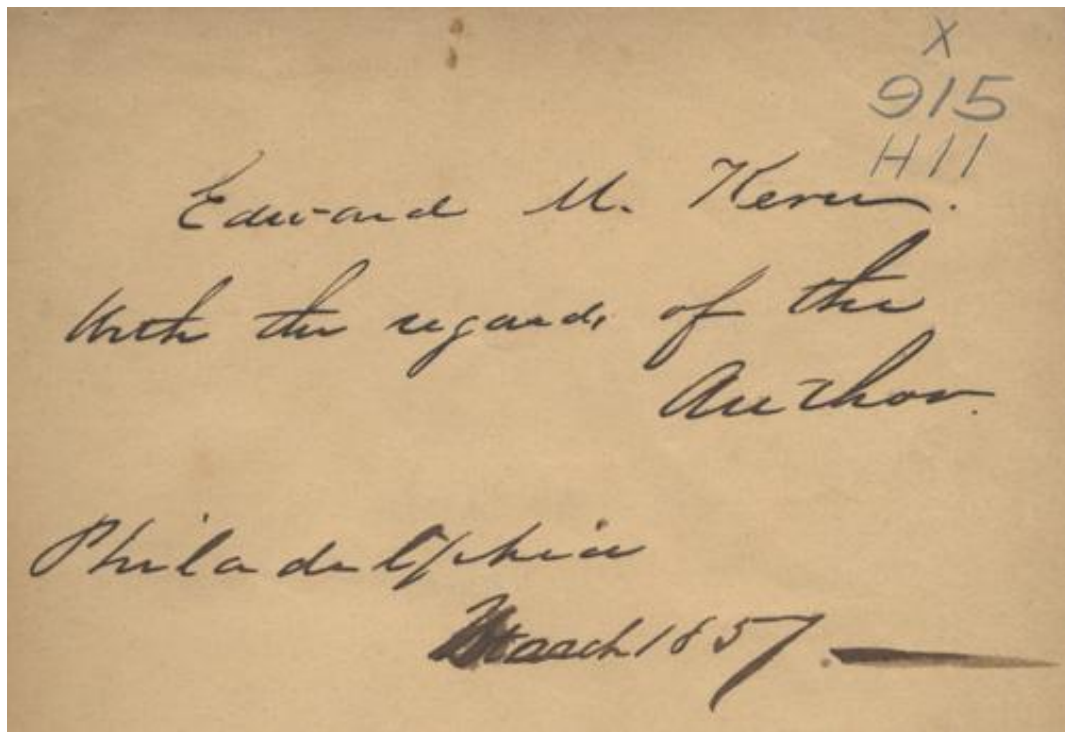 X
915
H11
Edward M. Kern.
With the regards of the
Author.
Philadelphia
March 1857.